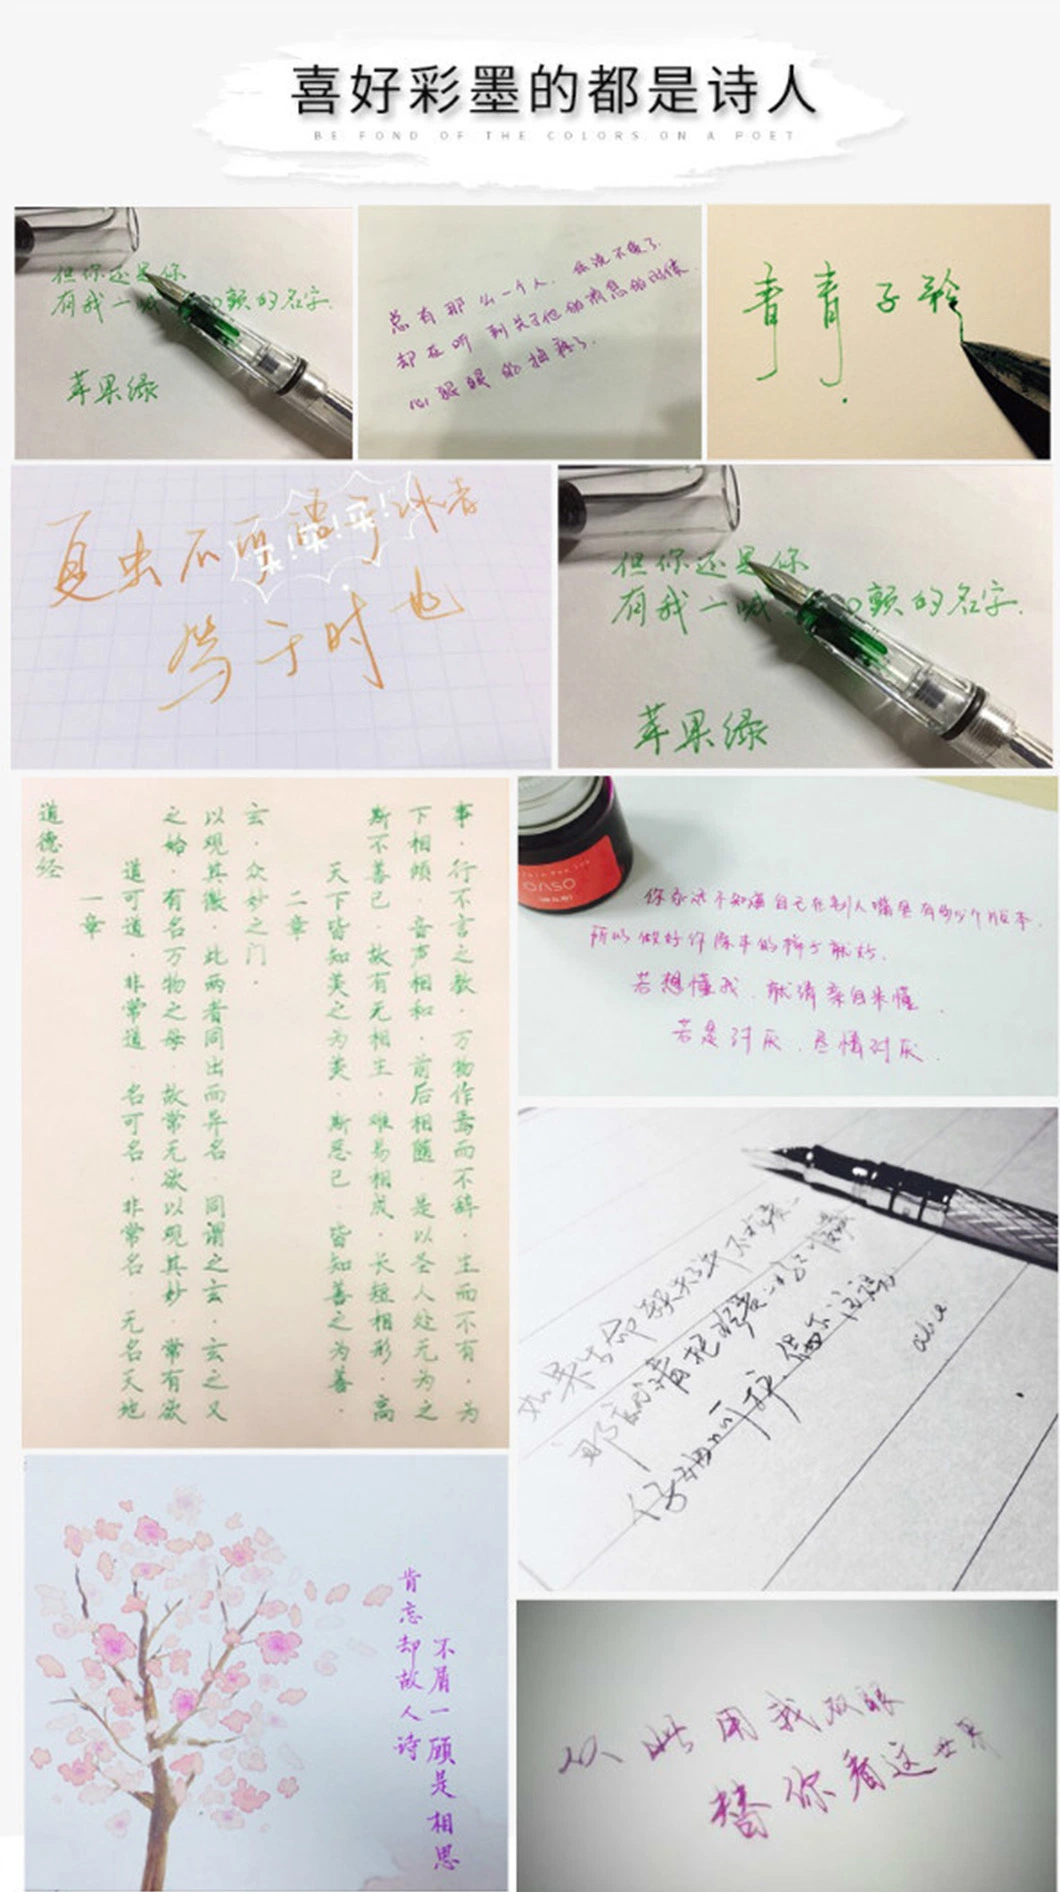 喜好彩墨的都是诗人
BE FOND OF THE COLORS ON A POET
但你还是你
有我一喊 颤的名字.
苹果绿
总有那么一个人. 你说不爱了.
却在听到关于他的消息的时候
心狠狠的抽疼了.
青青子衿
夏虫不可语于冰者
笃于时也
买!买!买!
但你还是你
有我一喊 颤的名字.
苹果绿
道德经
一章
道可道·非常道·名可名·非常名·无名天地
之始·有名万物之母·故常无欲以观其妙·常有欲
以观其徼·此两者同出而异名·同谓之玄·玄之又
玄·众妙之门·
二章
天下皆知美之为美·斯恶已·皆知善之为善·
斯不善已·故有无相生·难易相成·长短相形·高
下相倾·音声相和·前后相随·是以圣人处无为之
事·行不言之教·万物作焉而不辞·生而不有·为
OASO
你永远不知道自己在别人嘴里有多少个版本.
所以做好你原本的样子就好.
若想懂我.就请亲自来懂.
若是讨厌.尽情讨厌.
如果生命
那就请把
不屑一顾是相思
肯忘却故人诗
以此用我双眼
替你看这世界